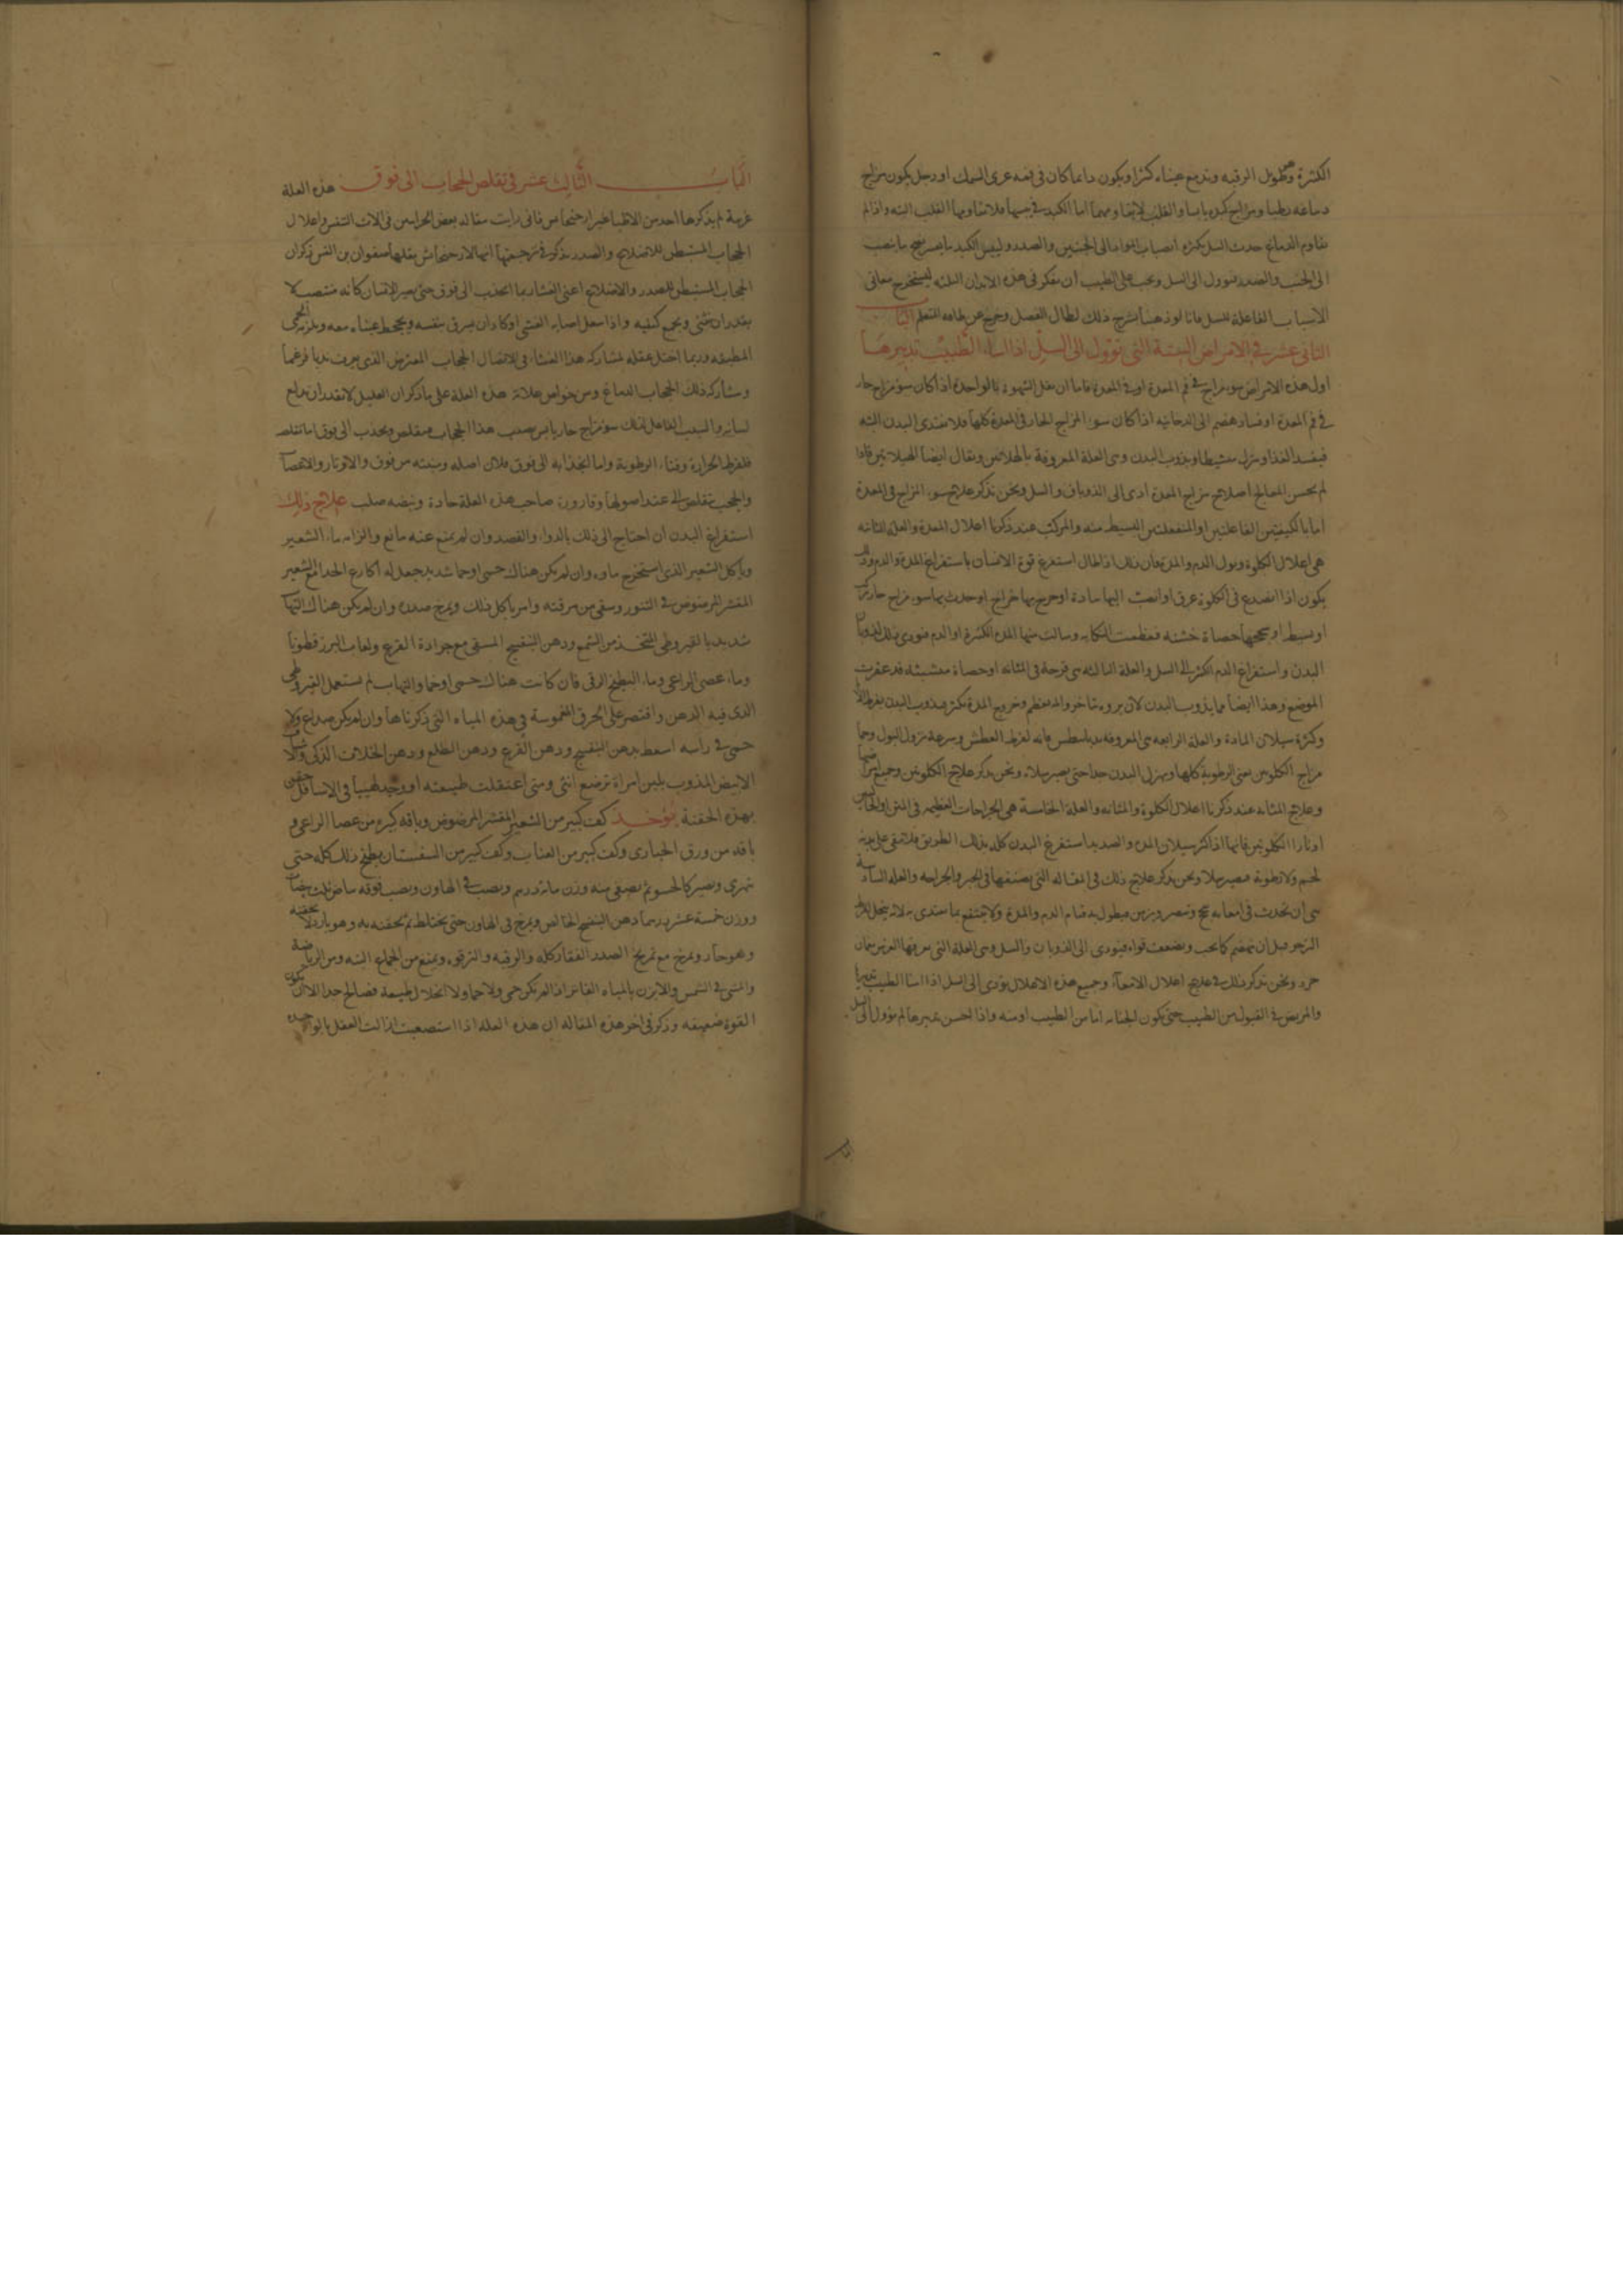 الكثرة وطويل الرقبه وتدمع عيناه كثرا ويكون دايما كان في فمه غرى السمك اورجل يكون مزاج
دماغه رطبا ومزاج كبده يابسا والقلب لا يقاومهما اما الكبد فيبسها فلا تقاومها القلب البته واذا لم
يقاوم الدماغ حدث السل بكثره انصباب المواد الى الجنبين والصدر ويبس الكبد ما يعسر نضج ما ينصب
الى الجنب والصدر فيوول الى السل ويجب على الطبيب ان يفكر في هذه الابدان الثلثه ليستخرج معاني
الاسباب الفاعلة للسل فانا لو ذهبنا نشرح ذلك لطال الفصل وخرج عن نظامه للمتعلم الباب
الثاني عشر في الامراض الستة التي توول الى السل اذا اساء الطبيب تدبيرها
اول هذه الامراض سو مزاج في فم المعدة او في المعدة فاما ان يبطل الشهوة بالواحدة اذا كان سو مزاج حار
في فم المعدة او فساد هضم الى الدخانيه اذا كان سو المزاج الحار في المعدة كلها فلا يغتدى البدن البته
فيفسد الغذا وينزل متشيطا ويذوب البدن وهي العلة المعروفة
لم يحسن المعالج اصلاح مزاج المعدة ادى الى الذوبان والسل ونحن نذكر علاج سو المزاج في المعدة
اما بالكيفيتين الفاعلتين او المنفعلتين البسيط منه والمركب عند ذكرنا اعلال المعدة والعلة الثانيه
هي اعلال الكلوة وبول الدم والمدة فان ذلك اذا طال استفرغ قوة الانسان باستفراغ المدة والدم وذلك
يكون اذا انصدع في الكلوة عرق او انصبت اليها مادة او خرج بها خراج او حدث بها سو مزاج حار
او بسيط او سحجها حصاة خشنه فعظمت النكايه وسالت منها المدة الكثيرة او الدم فيودى ذلك الى ذوبان
البدن واستفراغ الدم الكثير الى السل والعلة الثالثه هي قرحة في المثانه او حصاة متشبثه قد عقرت
الموضع وهذا ايضا مما يذوب البدن لان بروه يتاخر والمه يعظم وخروج المدة يكثر فيذوب البدن لفرط الالم
وكثرة سيلان المادة والعلة الرابعه هي المعروفه بديابيطس فانه لفرط العطش وسرعة نزول البول وحما
مزاج الكلوتين تفنى الرطوبة كلها ويهزل البدن جدا حتى يصير سلا ونحن نذكر علاج الكلوتين وجميع امراضها
وعلاج المثانه عند ذكرنا اعلال الكلوة والمثانه والعلة الخامسة هي الجراحات العظيمه في المتن او الجانبين
لحم ولا رطوبة فيصير سلا ونحن نذكر علاج ذلك في المقاله التي نصنفها في الجبر والجراحه والعله السادسة
هي ان تحدث في امعايه سحج وتصير
قبل ان تهضم كما يجب وتضعف قواه فيودى الى الذوبان والسل وهي العلة التي
ونحن نذكر ذلك في علاج اعلال الامعاء وجميع هذه الاعلال تودى الى السل اذا اسا الطبيب تدبيرها
والمريض في القبول من الطبيب حتى يكون الجنايه اما من الطبيب او منه واذا احسن تدبيرها لم توول الى السل
الباب الثالث عشر في تقلص الحجاب الى فوق هذه العلة
غريبة لم يذكرها احد من الاطبا غير ارجنجانس فاني رايت مقاله بعض الحرانيين في الات التنفس واعلال
الحجاب المستبطن للاضلاع والصدر يذكر في ترجمتها انها لارجنجانس نقلها صفوان بن النفس ذكر ان
الحجاب المستبطن للصدر والاضلاع اعني الغشا ربما انجذب الى فوق حتى يصير الانسان كانه منتصب لا
يقدر ان ينثني ويجمع كتفيه واذا سعل اصابه الغشي او كاد ان يغرق نفسه ويجحظ عيناه معه ويلزمه الحمى
المطبقه وربما اختل عقله لمشاركه هذا الغشاء في الاتصال الحجاب المعترض الذي يعرف
ومشاركه ذلك الحجاب الدماغ ومن خواص علامة هذه العلة على ما ذكر ان العليل لا يقدر ان يدلع
لسانه والسبب الفاعل لذلك سو مزاج حار يابس يصيب هذا الحجاب فيتقلص وينجذب الى فوق اما تقلصه
فلفرط الحرارة وفناء الرطوبة واما انجذابه الى فوق فلان اصله ومنبته من فوق والاوتار والاعصاب
والحجب تتقلص الى عند اصولها وقارورة صاحب هذه العلة حادة ونبضه صلب علاج ذلك
استفراغ البدن ان احتاج الى ذلك بالدواء والفصد وان لم يمنع عنه مانع والزامه ماء الشعير
وياكل الشعير الذي استخرج ماوه وان لم يكن هناك حمى او حما شديد جعل له اكارع الجدا مع الشعير
المقشر المرضوض في التنور وسقي من مرقته وامر باكل ذلك ويمرخ صدره وان لم يكن هناك التهاب
شديد بالقيروطي المتخذ من الشمع ودهن البنفسج المسقى مع جرادة القرع ولعاب البزرقطونا
وماء عصى الراعي وماء البطيخ الرقي فان كانت هناك حمى او حما والتهاب لم يستعمل القيروطي
الذي فيه الدهن واقتصر على الخرق المغموسة في هذه المياه التي ذكرناها وان لم يكن صداع ولا
حمى في راسه اسعط بدهن البنفسج ودهن القرع ودهن الطلع ودهن الخلاف الذكي
الابيض المذوب بلبن امراة ترضع انثى ومتى اعتقلت طبيعته او وجد لهيبا في الاسافل حقن
بهذه الحقنة يوخذ كف كبير من الشعير المقشر المرضوض وباقه كبيره من عصا الراعي و
باقه من ورق الخبازى وكف كبير من العناب وكف كبير من السفستان يطبخ ذلك كله حتى
يتهرى ويصير كالحسو ثم يصفى منه وزن مايه درهم ويصب في الهاون ويصب فوقه بياض ثلث بيضات
ووزن خمسة عشر درهما دهن البنفسج الخالص ويمرخ في الهاون حتى يختلط ثم يحقنه به وهو بارد لا يحقنه
وهو حار ويمرخ مع تمريخ الصدر الفقار كله والرقبه والترقوه ويمنع من الجماع البته ومن الرياضة
والمشى في الشمس والابزن بالمياه الفاتر اذا لم يكن حمى ولا حما ولا انحلال طبيعة فصالح جدا الا ان يكون
القوة ضعيفه وذكر في اخر هذه المقاله ان هذه العلة اذا استصعبت ازالت العقل بالواحده